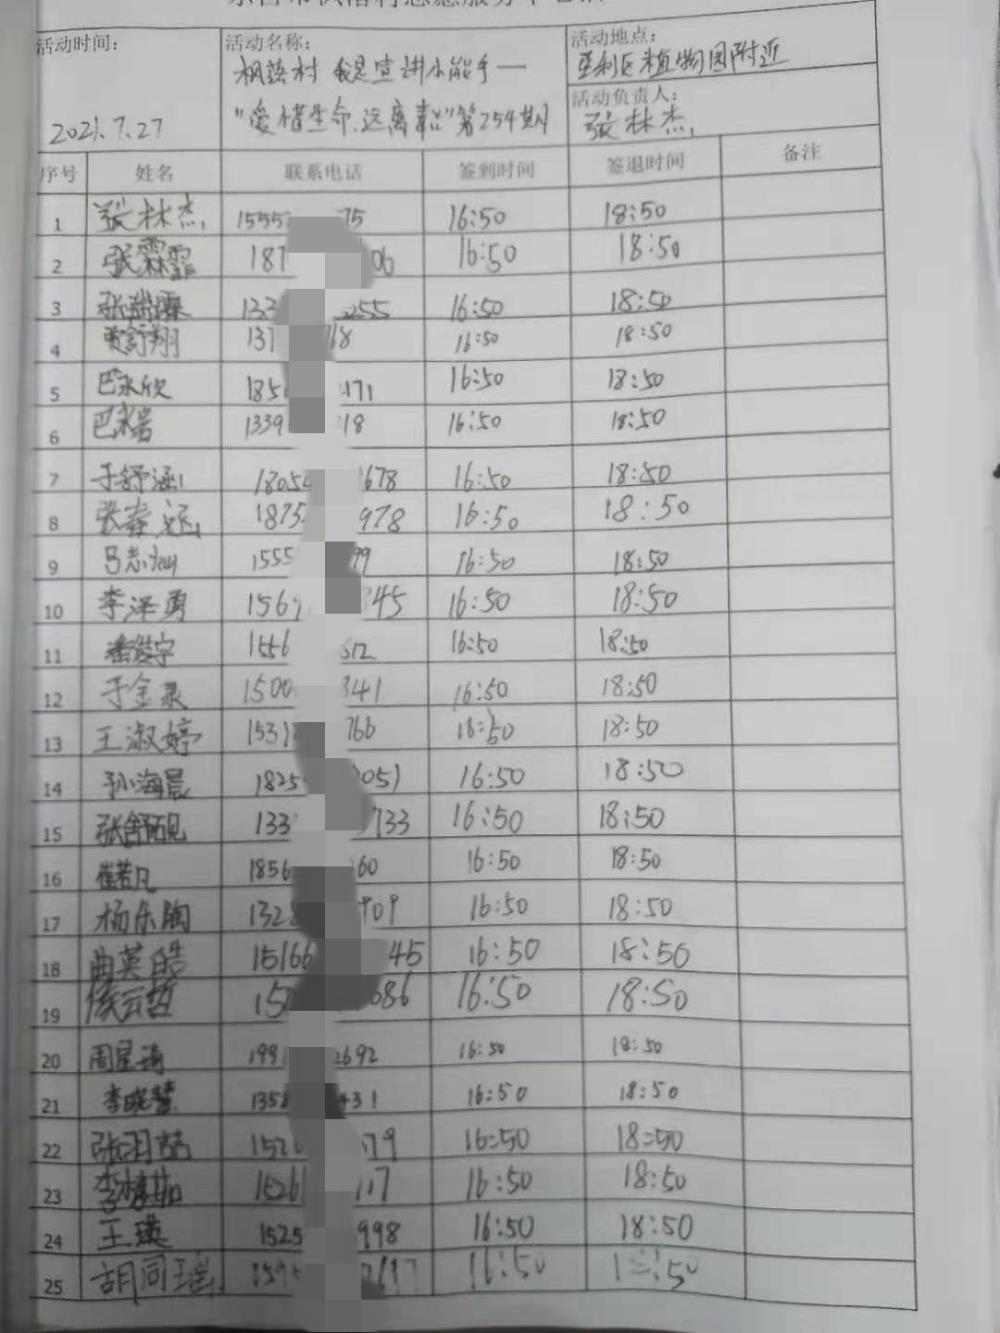 活动时间：
2021.7.27
活动名称：
枫落村 我是宣讲小能手一
"爱惜生命、远离毒品"第254期
活动地点：
垦利区植物园附近
活动负责人：
张林杰
序号 姓名 联系电话 签到时间 签退时间 备注
1 张林杰 1555 75 16:50 18:50
2 张霖霏 187 06 16:50 18:50
3 张 霖 133 255 16:50 18:50
4 贾舒翔 137 68 16:50 18:50
5 巴永欣 185 171 16:50 18:50
6 巴 1339 18 16:50 18:50
7 于舒涵 18054 678 16:50 18:50
8 张春 1875 978 16:50 18:50
9 吕志 1555 99 16:50 18:50
10 李泽勇 156 345 16:50 18:50
11 宇 1556 512 16:50 18:50
12 于金录 1500 341 16:50 18:50
13 王淑婷 1531 766 18:50 18:50
14 孙海晨 1825 051 16:50 18:50
15 张舒砚 133 733 16:50 18:50
16 崔若凡 1856 60 16:50 18:50
17 杨乐陶 1328 909 16:50 18:50
18 曲英皓 15166 45 16:50 18:50
19 侯云哲 150 686 16:50 18:50
20 周星 199 2692 16:50 18:50
21 李晓慧 1358 431 16:50 18:50
22 张羽喆 1526 79 16:50 18:50
23 李 茹 1526 117 16:50 18:50
24 王瑛 1525 998 16:50 18:50
25 胡同瑶 159 697 16:50 18:50